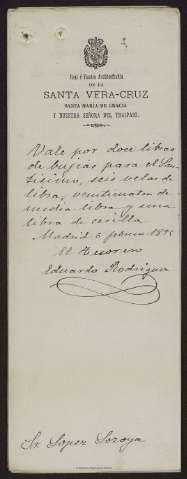 Real é Ilustre Archicofradía
DE LA
SANTA VERA-CRUZ
MARÍA DE GRACIA
Y NUESTRA SEÑORA DEL TRASPASO.
Vale por doce libras
de bujias para el San-
tisimo, seis velas de
libra, veinticuatro de
media libra y una
libra de cerilla
Madrid 6 1895
El Tesorero
Eduardo Rodriguez
Sr Lopez Soroya